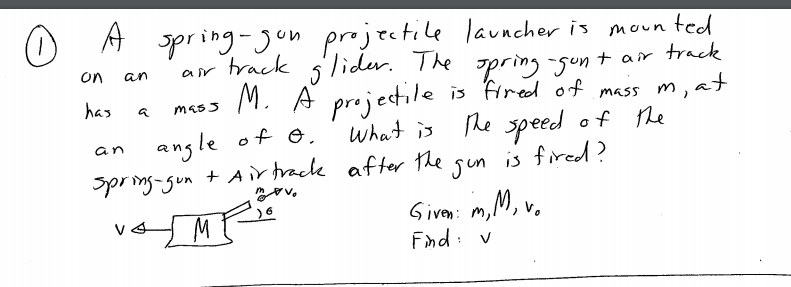 ① A spring-gun projectile launcher is mounted
on an air track glider. The spring-gun + air track
has a mass M. A projectile is fired of mass m, at
an angle of θ. What is the speed of the
spring-gun + Airtrack after the gun is fired?
m v₀
θ
v M
Given: m, M, v₀
Find: v